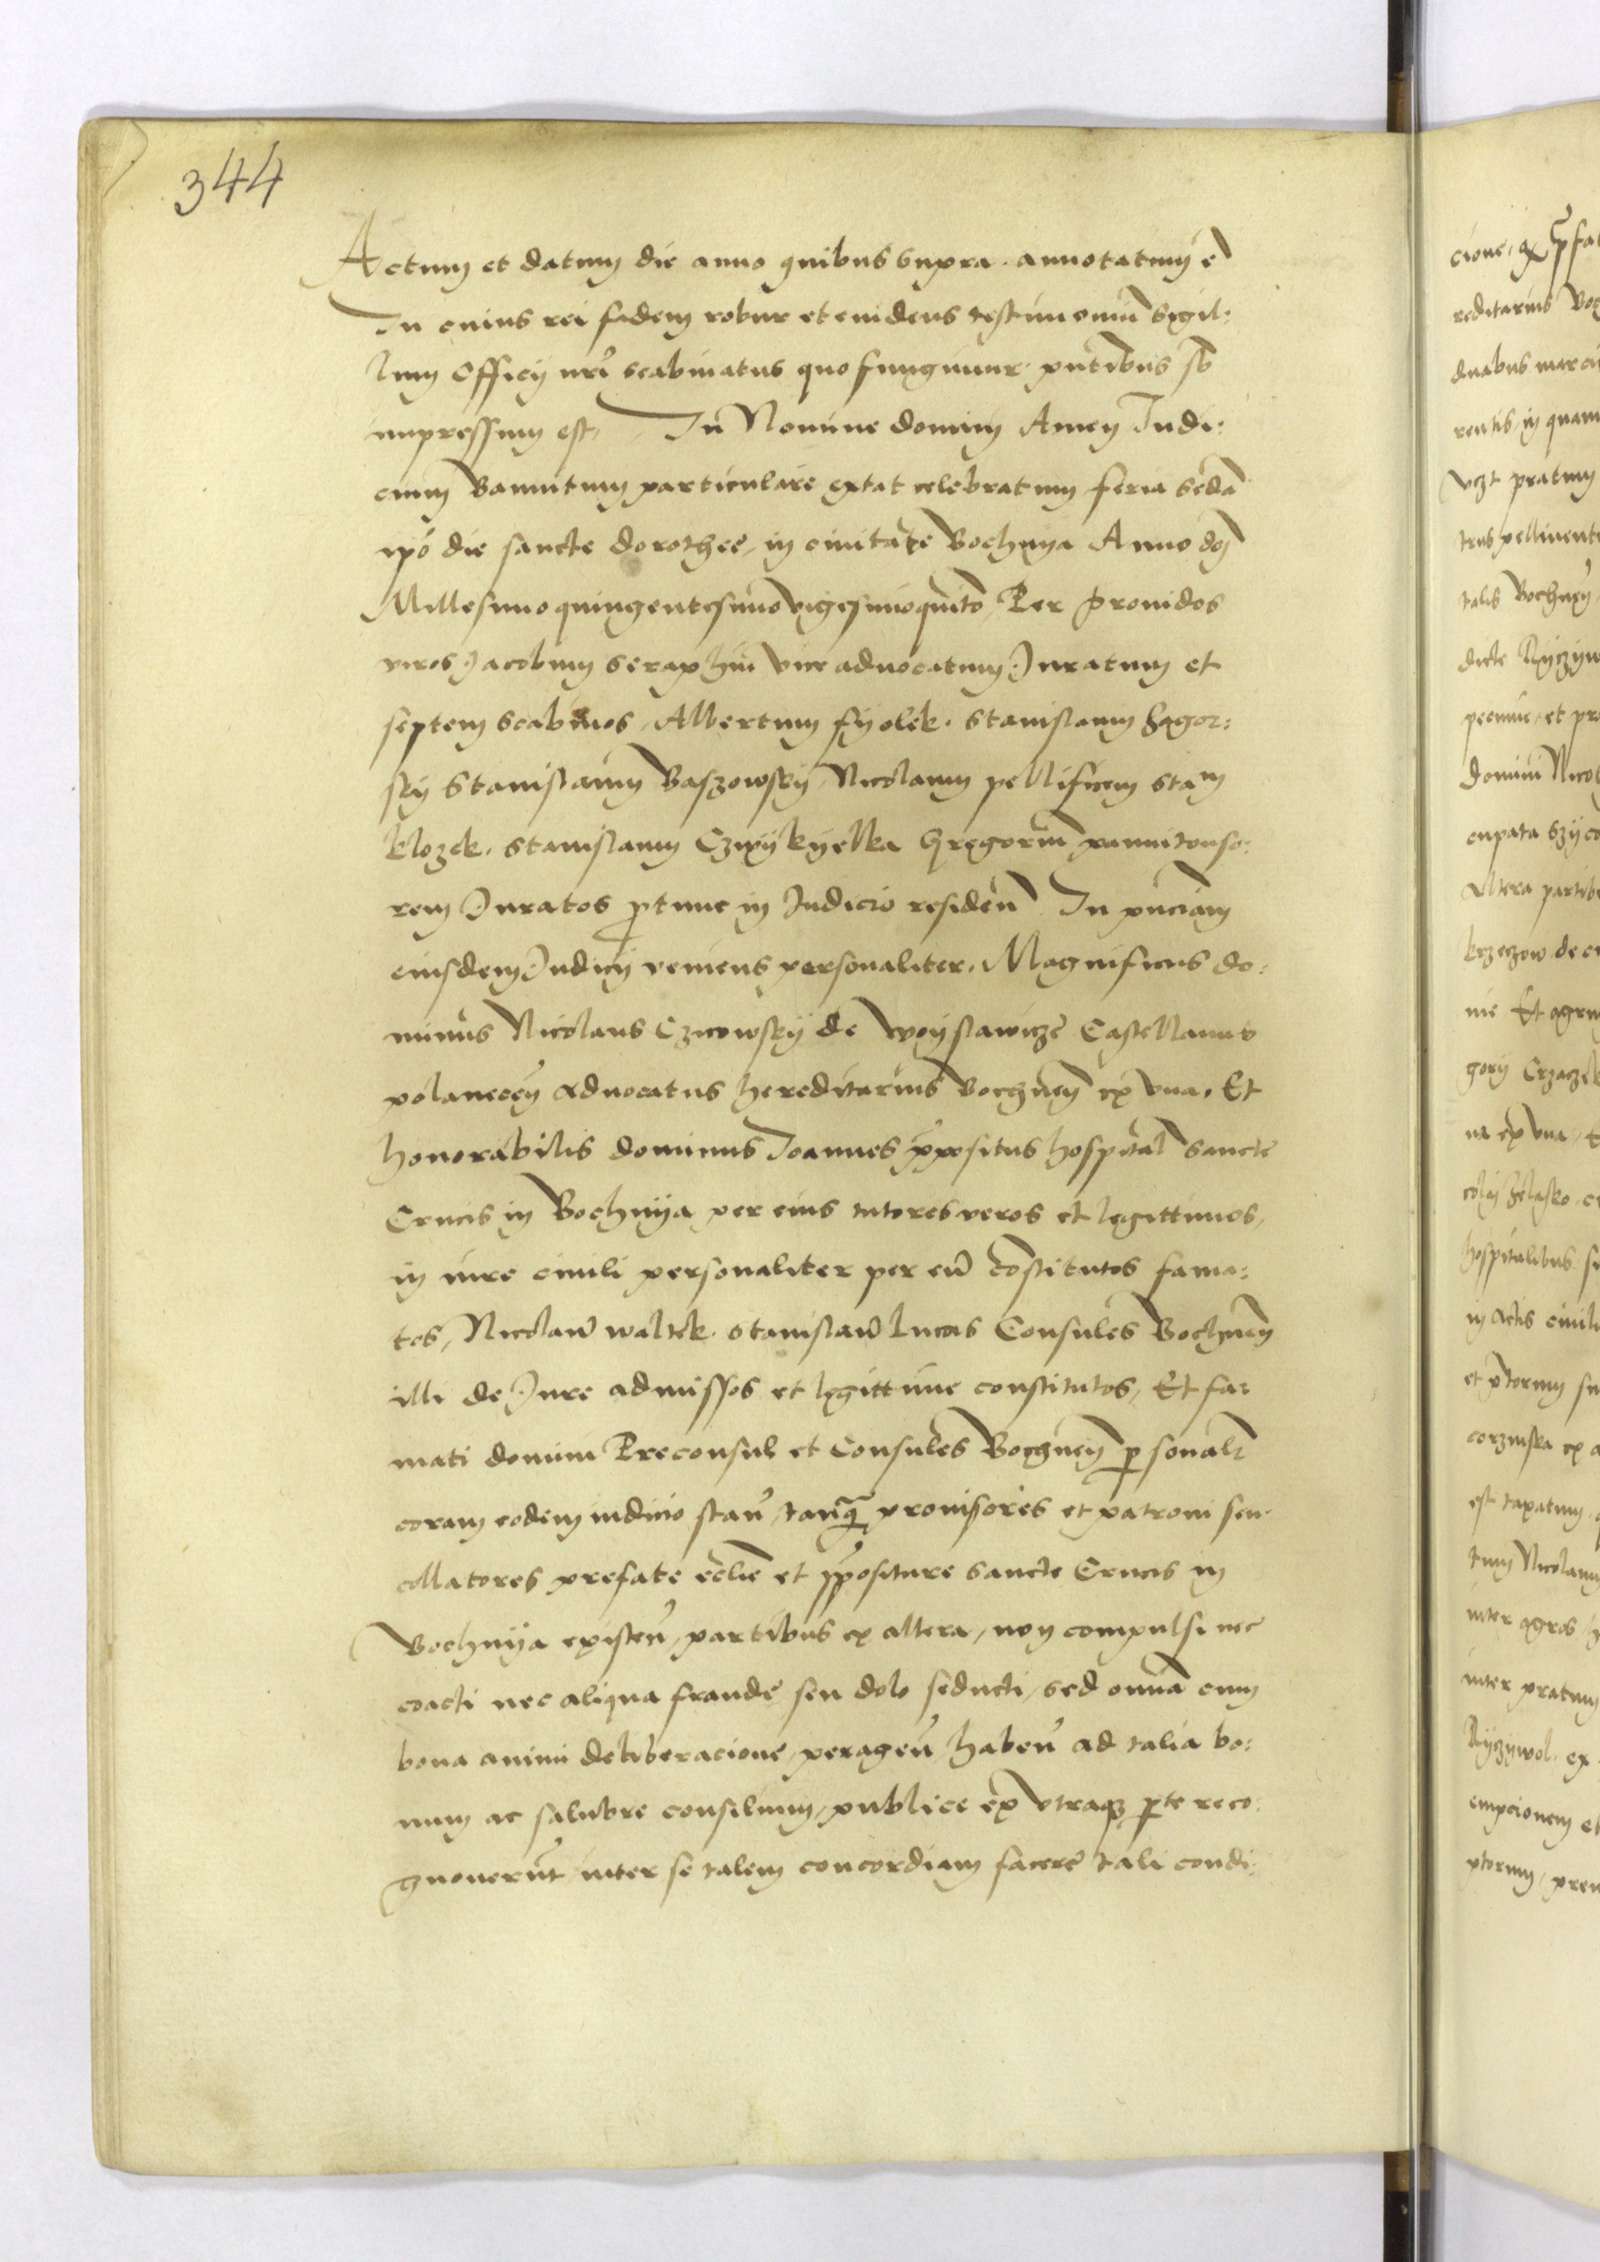 344
Actum et datum die anno quibus supra annotatum ē
In cuius rei fidem robur et euidens testimoniū Sigil:
lum Officij nrī scabinatus quo fungimur pntibus sb
impressum est, In Nomine domini Amen Iudi:
cium Bannitum particulare extat celebratum feria secda
ipo die sancte dorothee, in ciuitate Bochnya Anno dom
Millesimo quingentesimo vigesimoquīto, Per Prouidos
viros Jacobum Seraphin vice aduocatum Juratum et
septem scabinos, Albertum fyolek, Stanislaum Hagor:
sky Stanislaum Baszowsky Nicolaum pellificem stam
klozek. Stanislaum Czwykyelka Gregoriū pannitonso:
rem Juratos ptunc in Judicio residen In pnciam
eiusdem Judicij veniens personaliter, Magnificus do:
minus Nicolaus Czicowsky de Woyslawicze Castellanus
polanecen Aduocatus hereditarius bochnen ex vna, Et
honorabilis dominus Joannes ppositus hospital Sancte
Crucis in Bochnya per eius tutores veros et legittimos,
in iure ciuili personaliter per eū cōstitutos fama:
tos, Nicolaū waltek. Stanislaū lucas Consules Bochnen
illi de Jure admissos et legittime constitutos, Et fa:
mati domini Preconsul et Consules Bochnen psonalr
coram eodem iudicio stan, tanq prouisores et patroni seu
collatores prefate ecclie et ppositure Sancte Crucis in
Bochnya existen, partibus ex altera, non compulsi nec
coacti nec aliqua fraude seu dolo seducti, sed omā cum
bona animi deliberacione, peragen, haben ad talia bo:
num ac salubre consilium, publice ex vtraqz pte reco:
gnouerūt inter se talem concordiam facere tali condi:
reditarius
duabus
rentis, in quam
vzt pratum
talis Bochnen
dicte
pecunie, et
domini
altera
de
nie Et agrum
na ex vna,
hospitalibus
in Actis ciuili
ex
est taxatum,
tum Nicolaum
inter agros,
inter pratum
Ryczywol. ex
empcionem et